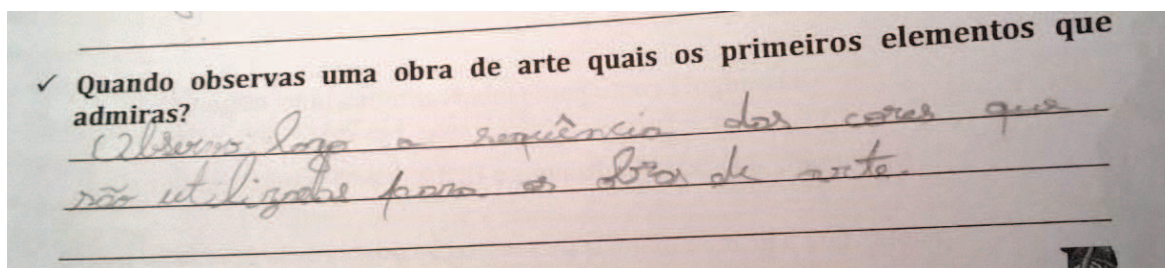 ✓ Quando observas uma obra de arte quais os primeiros elementos que
admiras?
Observo logo a sequência das cores que
são utilizadas para as obras de arte.